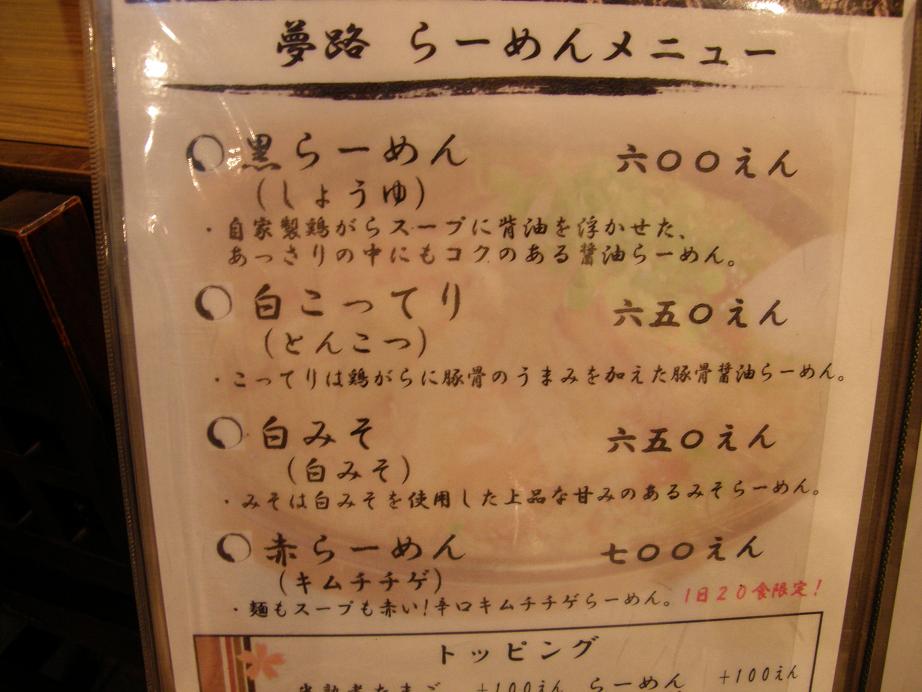 夢路 らーめんメニュー
黒らーめん 六〇〇えん
(しょうゆ)
・自家製鶏がらスープに背油を浮かせた、
あっさりの中にもコクのある醤油らーめん。
白こってり 六五〇えん
(とんこつ)
・こってりは鶏がらに豚骨のうまみを加えた豚骨醤油らーめん。
白みそ 六五〇えん
(白みそ)
・みそは白みそを使用した上品な甘みのあるみそらーめん。
赤らーめん 七〇〇えん
(キムチチゲ)
・麺もスープも赤い!辛口キムチチゲらーめん。1日20食限定!
トッピング
+100えん らーめん +100えん